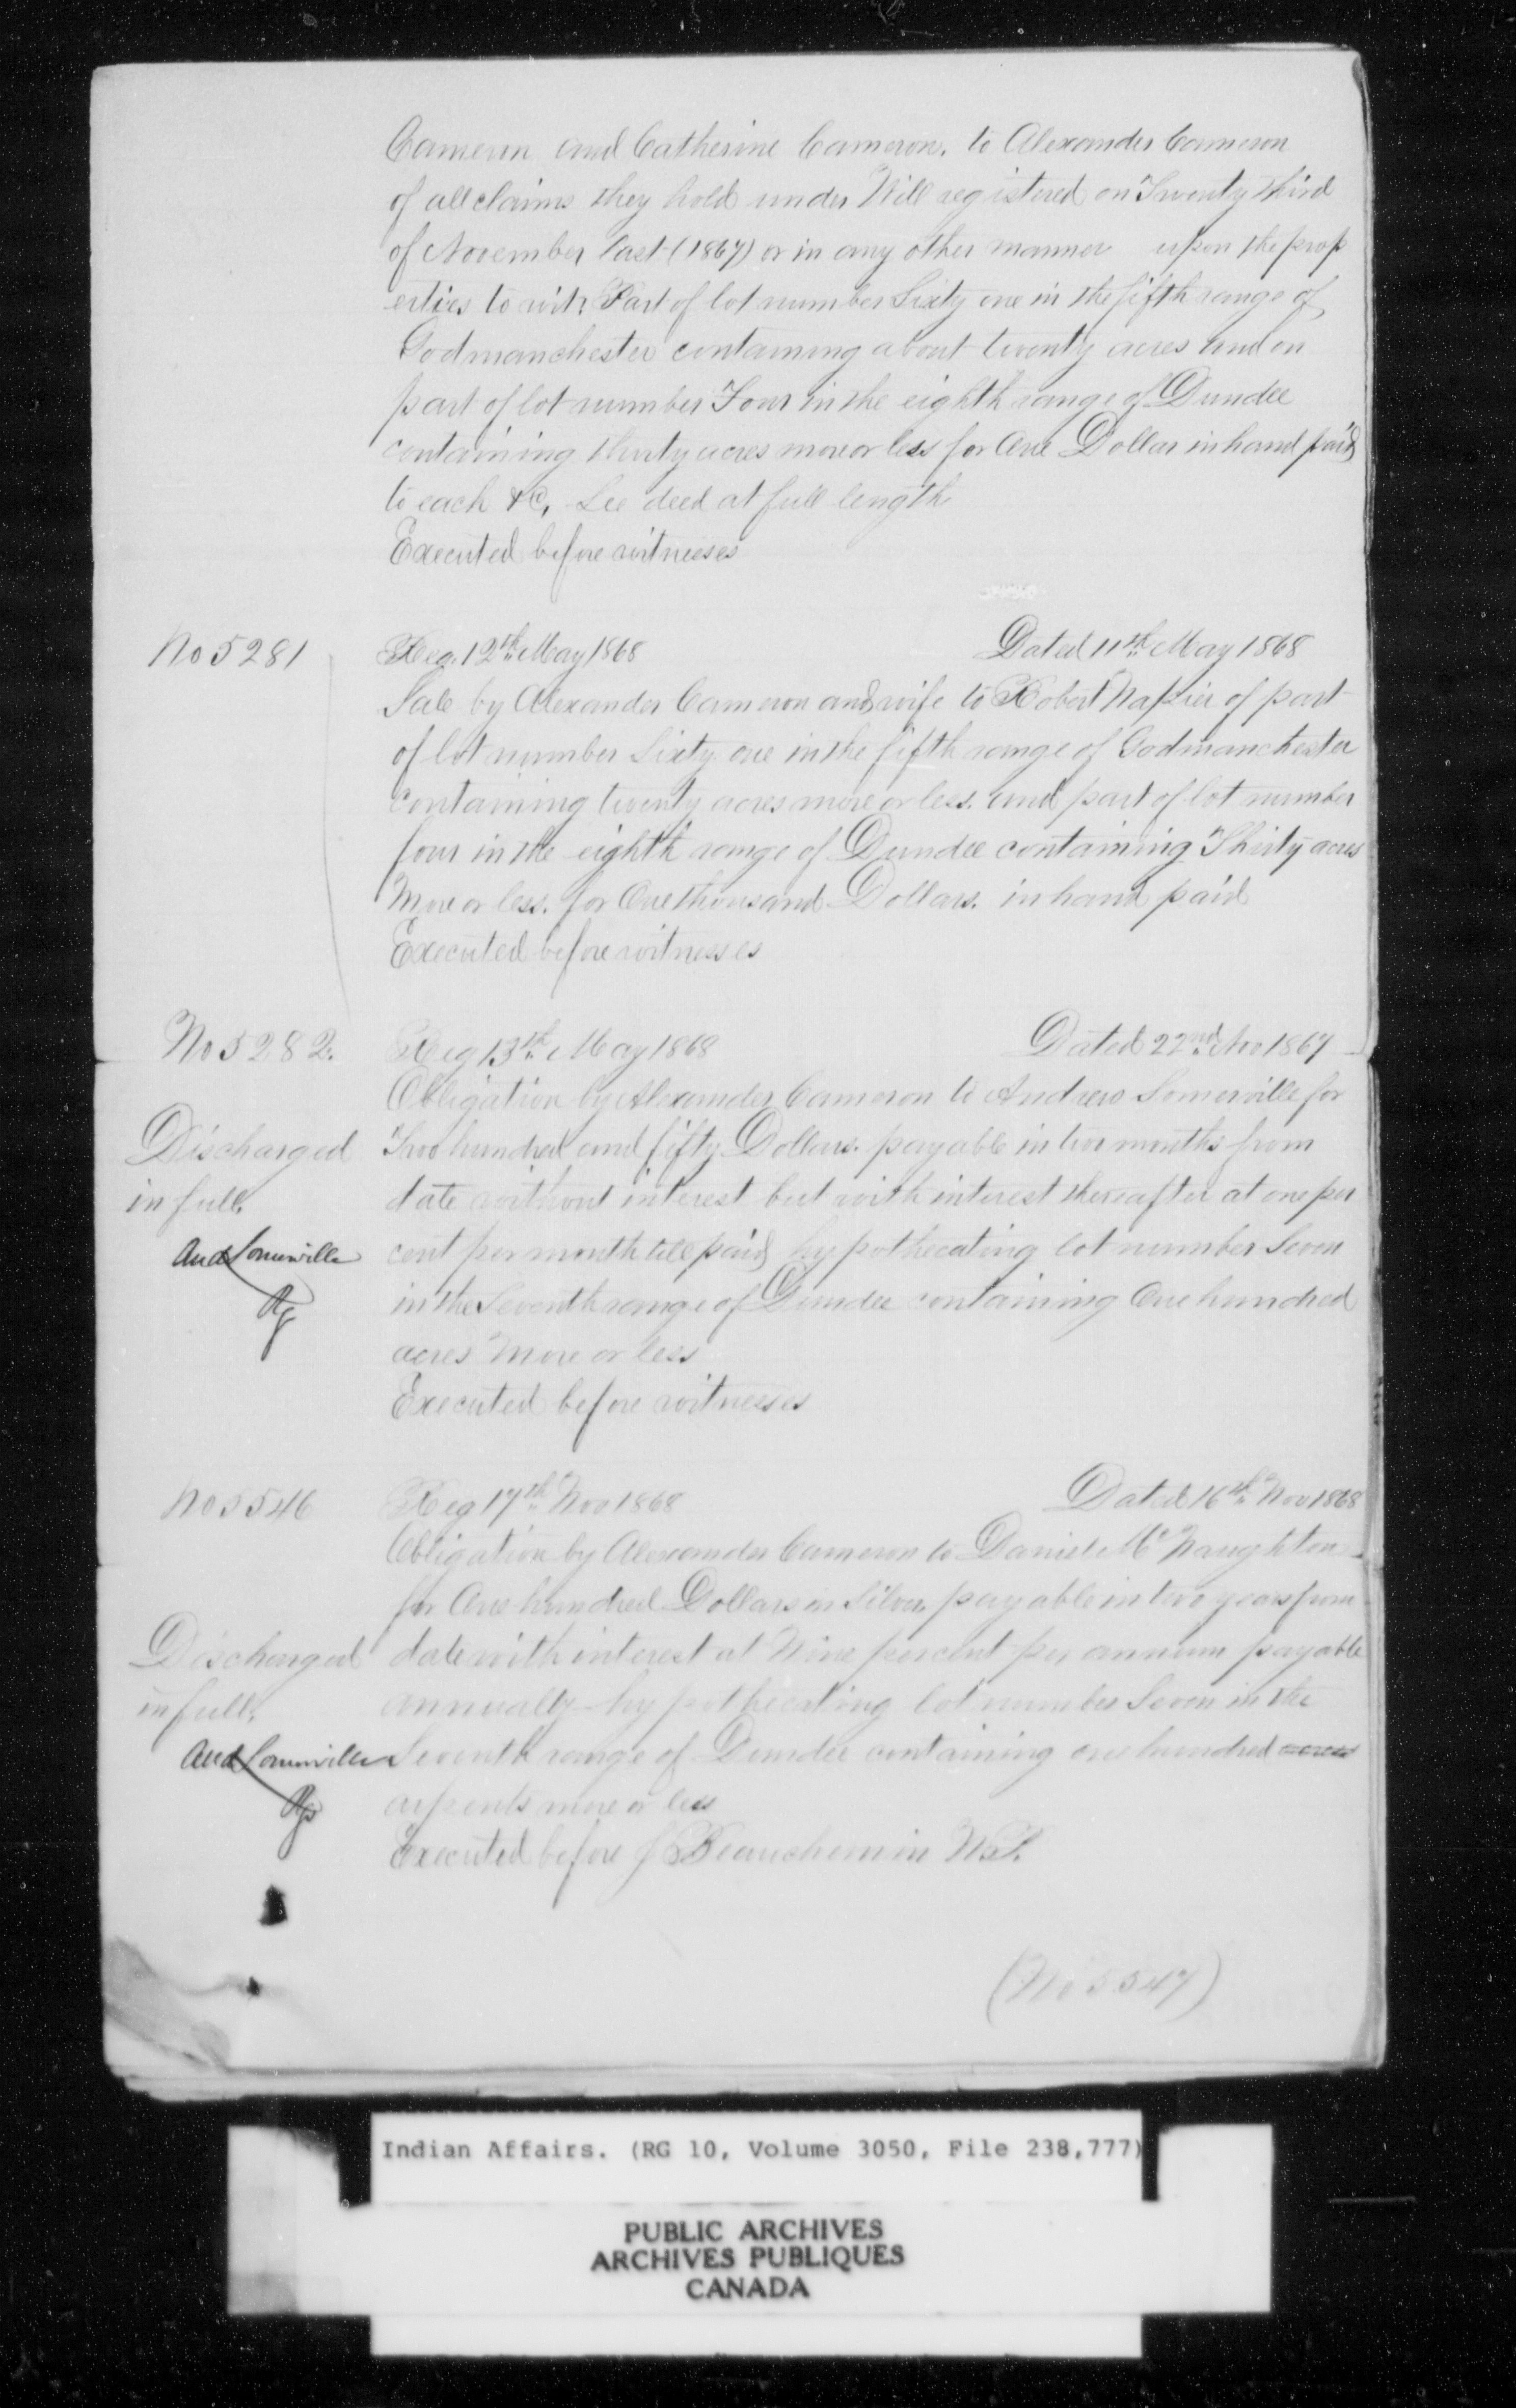 Cameron and Catherine Cameron. to Alexander Cameron
of all claims they hold under Will registered on Twenty third
of November last (1867) or in any other manner upon the prop
erties to wit: Part of lot number Sixty one in the fifth range of
Godmanchester containing about twenty acres and on
part of lot number Four in the eighth range of Dundee
containing thirty acres more or less for One Dollar in hand paid
to each &c, See deed at full length
Executed before witnesses
No 5281
Reg. 12th May 1868
Dated 11th May 1868
Sale by Alexander Cameron and wife to Robert Napier of part
of lot number Sixty one in the fifth range of Godmanchester
containing twenty acres more or less. and part of lot number
four in the eighth range of Dundee containing Thirty acres
More or less. for One thousand Dollars. in hand paid
Executed before witnesses
No 5282.
Reg 13th May 1868
Dated 22nd Nov 1867
Obligation by Alexander Cameron to Andrew Somerville for
Discharged
Two hundred and fifty Dollars. payable in two months from
in full.
date without interest but with interest thereafter at one per
And Somerville
cent per month till paid hypothecating lot number Seven
Rg
in the Seventh range of Dundee containing One hundred
acres More or less
Executed before witnesses
No 5546
Reg 17th Nov 1868
Dated 16th Nov 1868
Obligation by Alexander Cameron to Daniel McNaughton
for One hundred Dollars in Silver, payable in two years from
Discharged
date with interest at Nine percent per annum payable
in full.
annually hypothecating lot number Seven in the
And Somerville
Seventh range of Dundee containing one hundred acres
arpents more or less
Executed before J Beauchemin N.P.
(No 5547)
Indian Affairs. (RG 10, Volume 3050, File 238,777)
PUBLIC ARCHIVES
ARCHIVES PUBLIQUES
CANADA